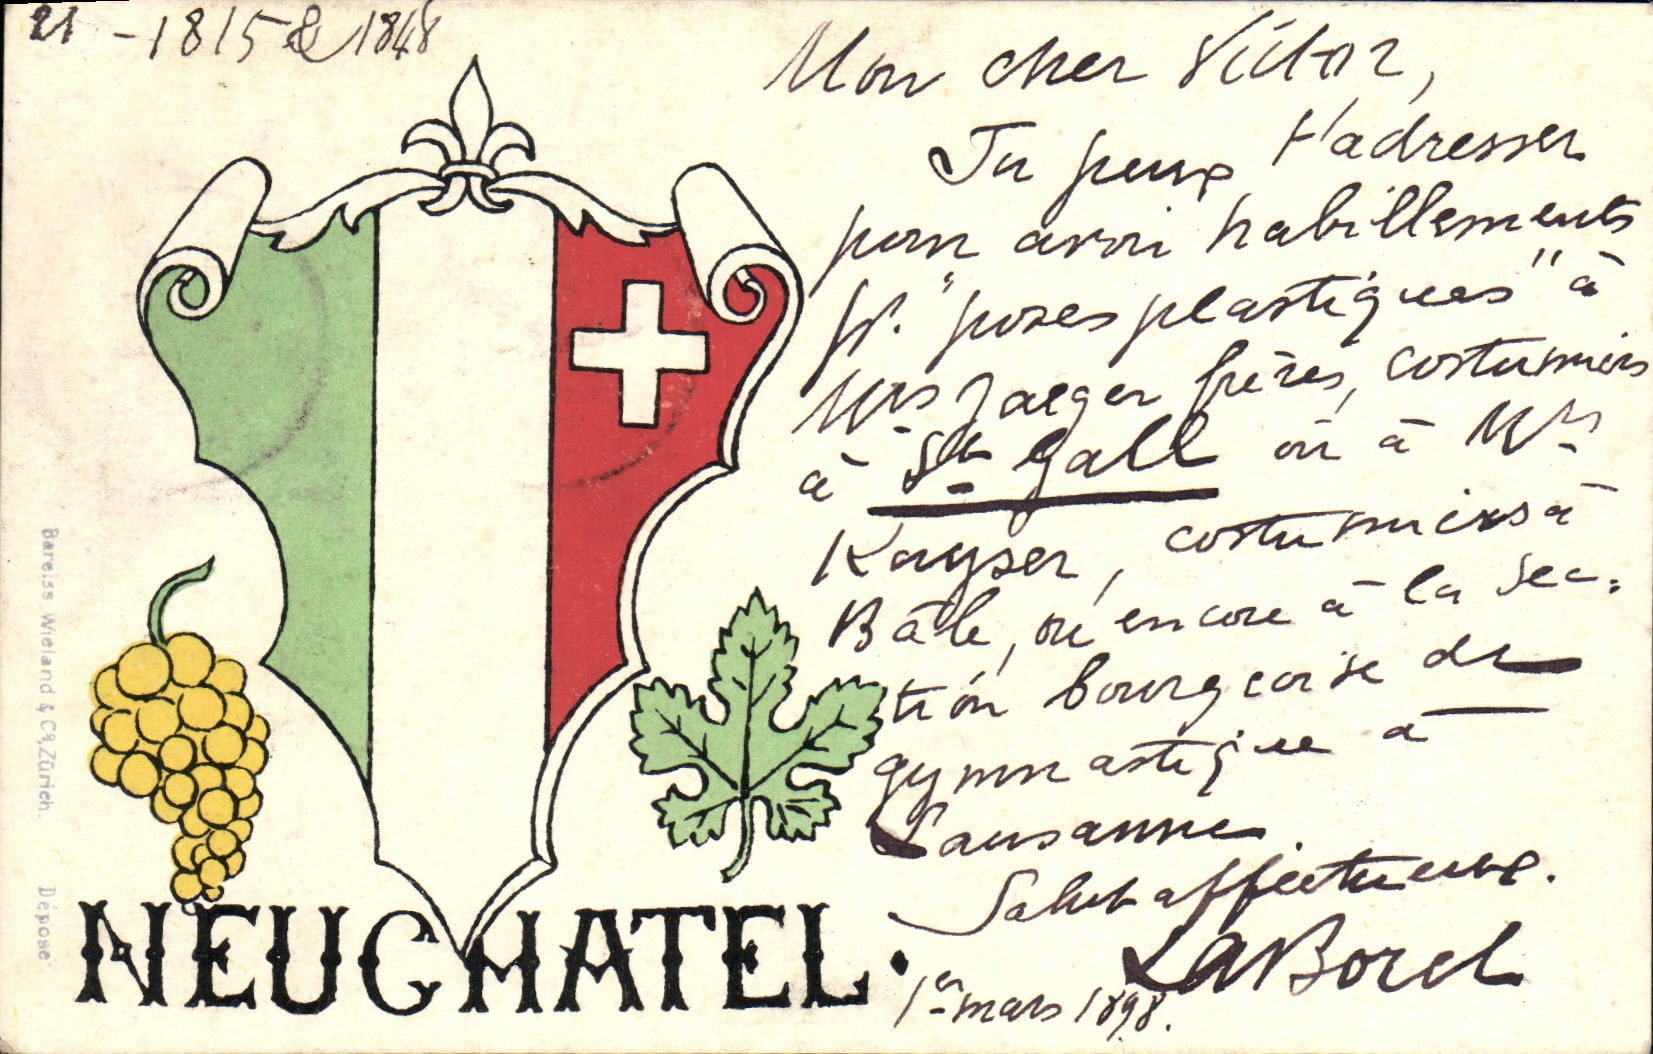 21 - 1815 & 1848
Mon cher Victor,
Tu peux t'adresser
pour avoir habillements
pr. "poses plastiques" à
Mrs Jaeger frères, costumiers
à St Gall ou à Mrs
Kayser, costumiers à
Bâle, ou encore à la sec-
tion bourgeoise de
gymnastique à
Lausanne.
Salut affectueux.
LABorel
1er mars 1898.
NEUCHATEL.
Bareiss Wieland & Co, Zürich. Déposé